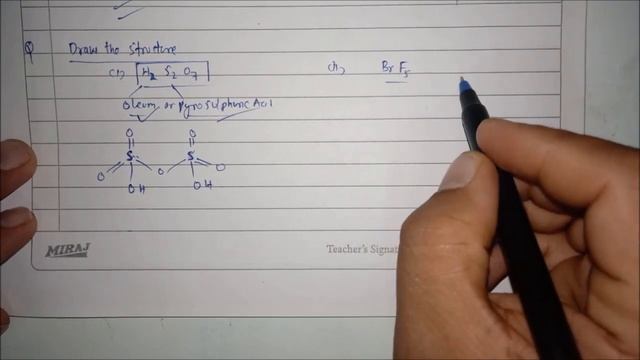 Q Draw the Structure
(i) H2 S2 O7
(ii) Br F5
Oleum or Pyrosulphuric Acid
O O
S S
O O O
OH OH
MIRAJ
Teacher's Signat